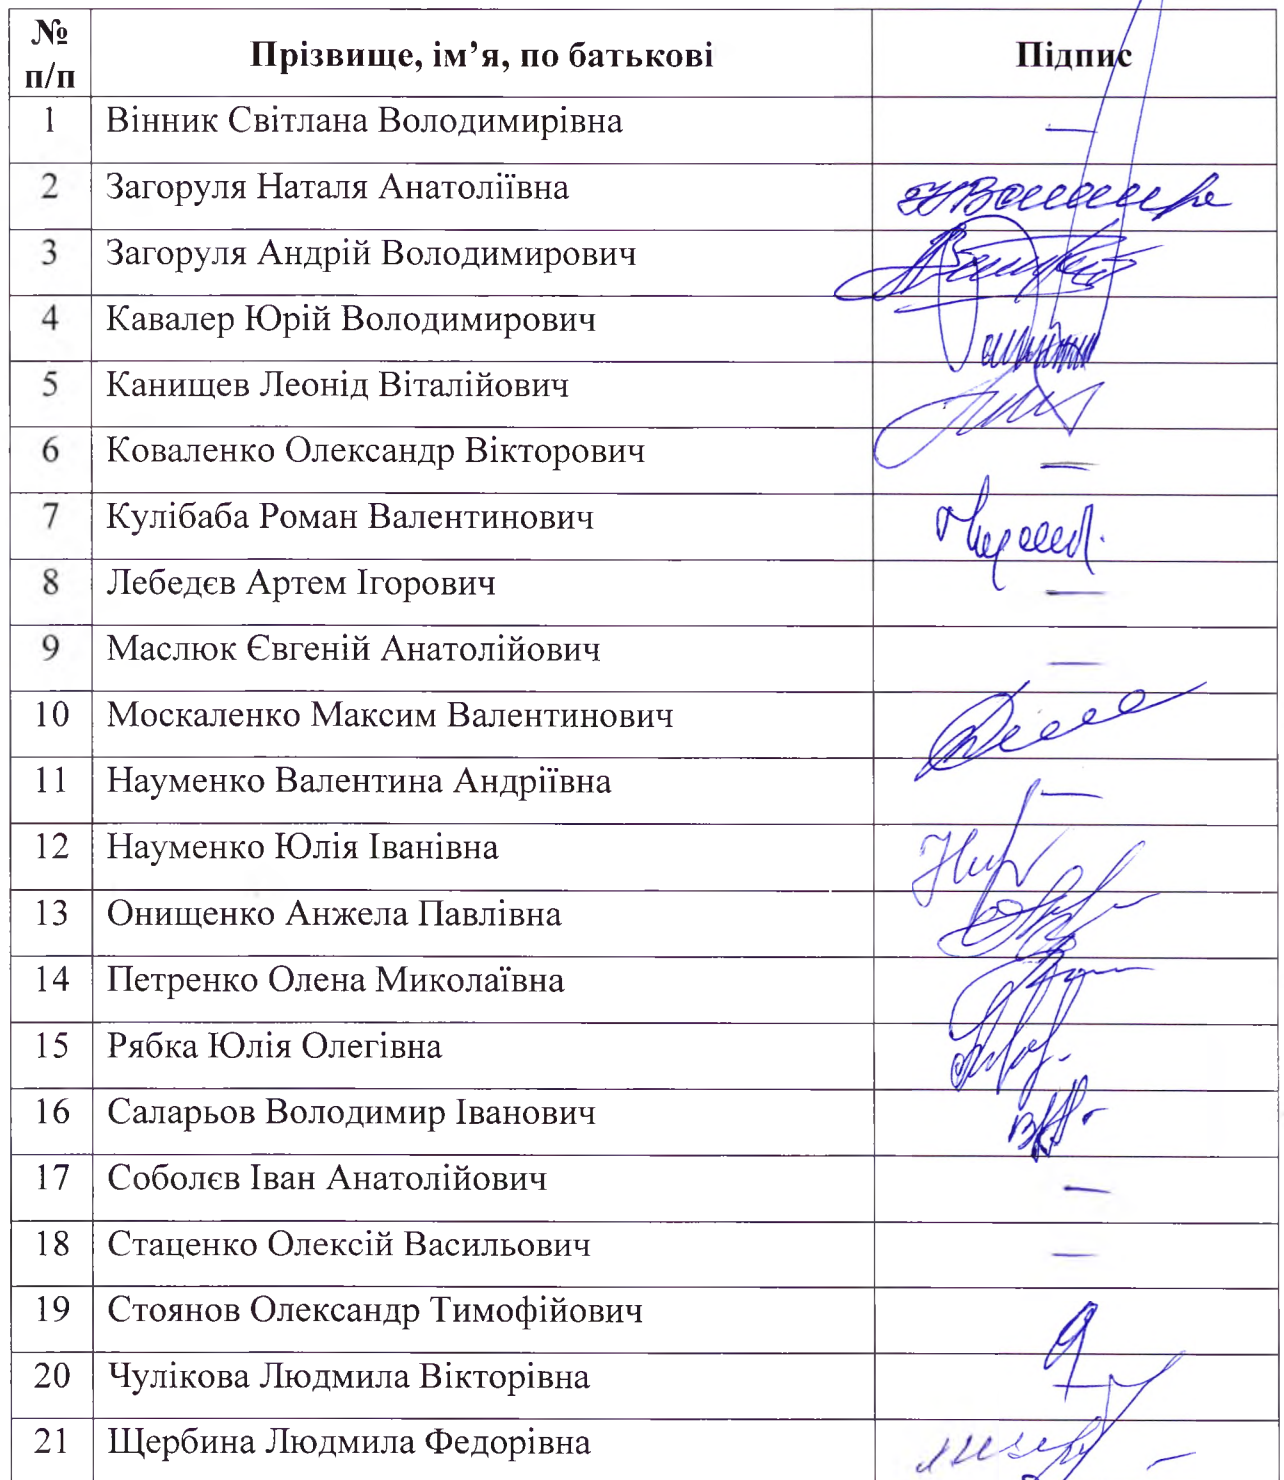 № п/п Прізвище, ім’я, по батькові Підпис
1 Вінник Світлана Володимирівна —
2 Загоруля Наталя Анатоліївна
3 Загоруля Андрій Володимирович
4 Кавалер Юрій Володимирович
5 Канищев Леонід Віталійович
6 Коваленко Олександр Вікторович —
7 Кулібаба Роман Валентинович
8 Лебедєв Артем Ігорович —
9 Маслюк Євгеній Анатолійович —
10 Москаленко Максим Валентинович
11 Науменко Валентина Андріївна —
12 Науменко Юлія Іванівна
13 Онищенко Анжела Павлівна
14 Петренко Олена Миколаївна
15 Рябка Юлія Олегівна
16 Саларьов Володимир Іванович
17 Соболєв Іван Анатолійович —
18 Стаценко Олексій Васильович —
19 Стоянов Олександр Тимофійович
20 Чулікова Людмила Вікторівна —
21 Щербина Людмила Федорівна